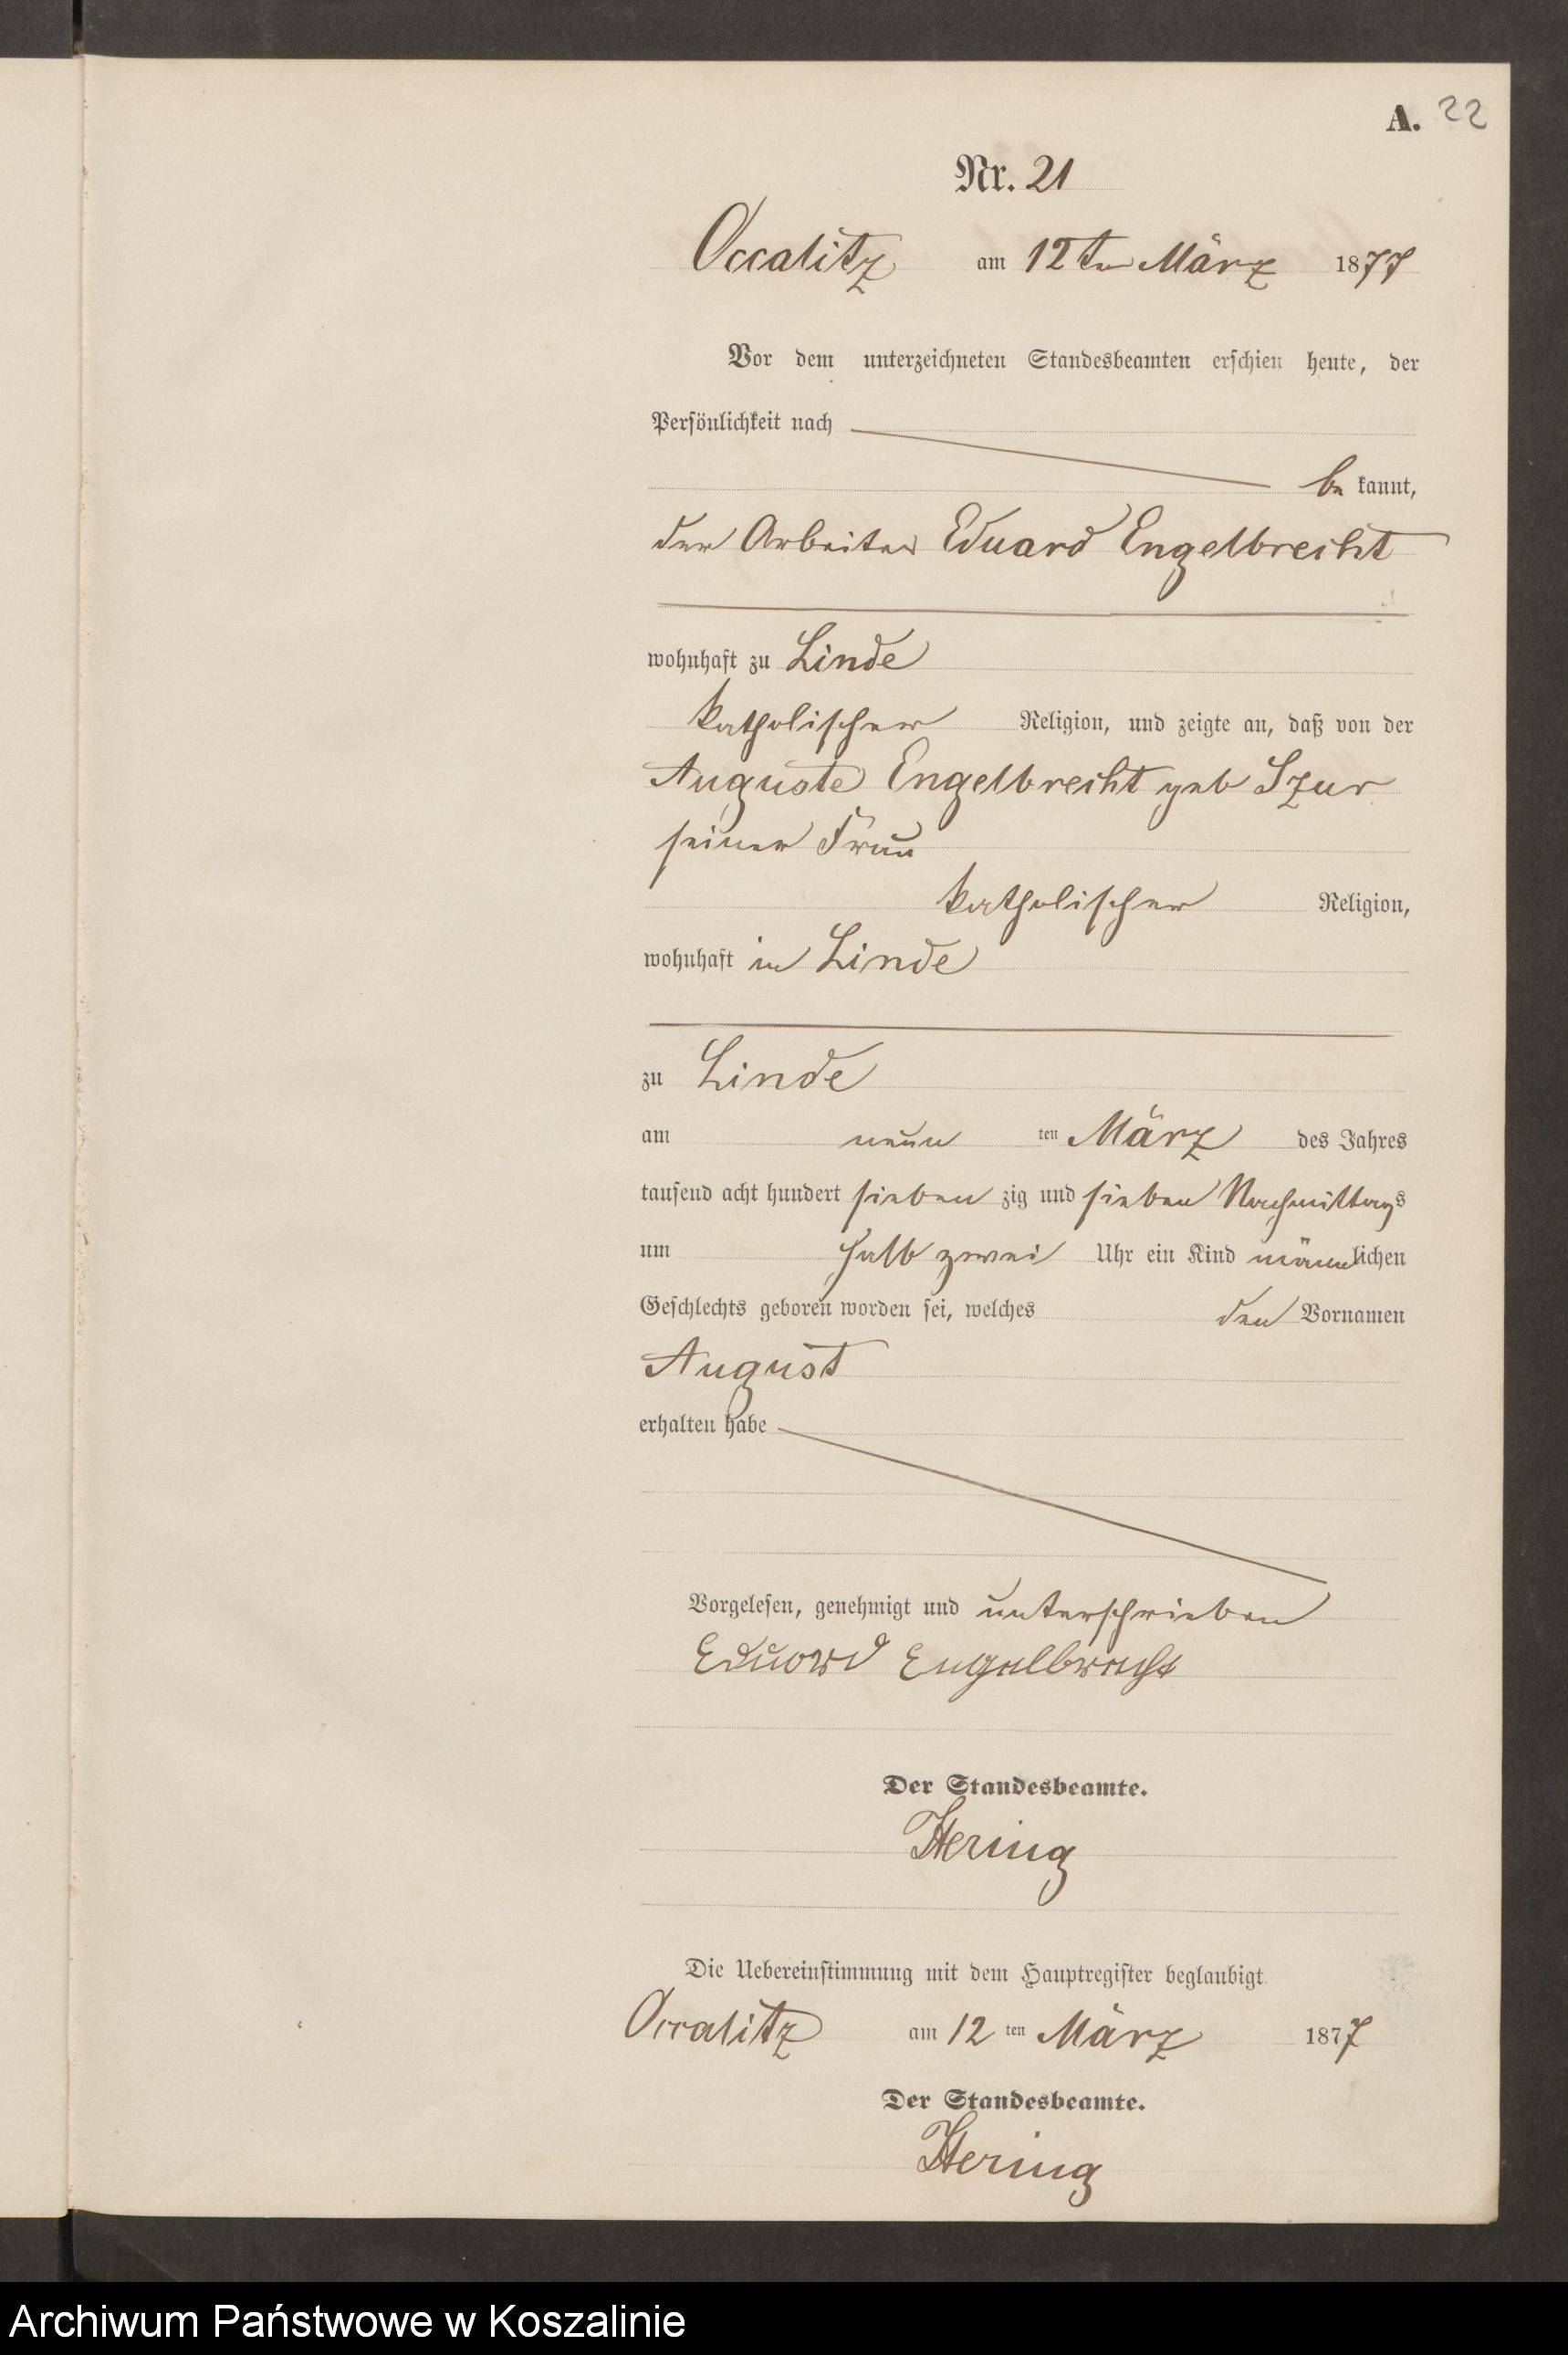 A. 22
Nr. 21
Occalitz am 12ten März 1877
Vor dem unterzeichneten Standesbeamten erschien heute, der
Persönlichkeit nach
be kannt,
der Arbeiter Eduard Engelbrecht
wohnhaft zu Linde
katholischer Religion, und zeigte an, daß von der
Auguste Engelbrecht geb Szur
seiner Frau
katholischer Religion,
wohnhaft in Linde
zu Linde
am neun ten März des Jahres
tausend acht hundert sieben zig und sieben Nachmittags
um halb zwei Uhr ein Kind männlichen
Geschlechts geboren worden sei, welches den Vornamen
August
erhalten habe
Vorgelesen, genehmigt und unterschrieben
Eduard Engelbrecht
Der Standesbeamte.
Hering
Die Uebereinstimmung mit dem Hauptregister beglaubigt.
Occalitz am 12 ten März 1877
Der Standesbeamte.
Hering
Archiwum Państwowe w Koszalinie